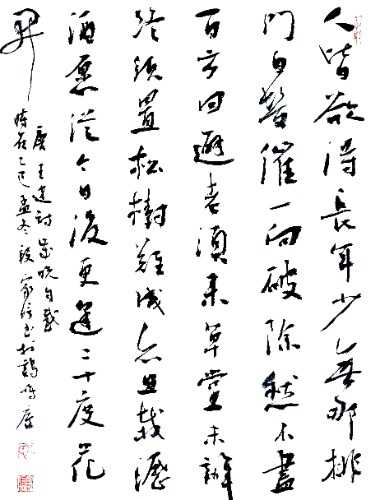 人皆欲得長年少無那排
門白髮催一向破除愁不盡
百方回避老須來草堂未辦
終須置松樹難成亦且栽瀝
酒願從今日後更逢二十度花
開
唐王建詩歲晚自感
時在乙巳孟冬段家書於鶴鳴